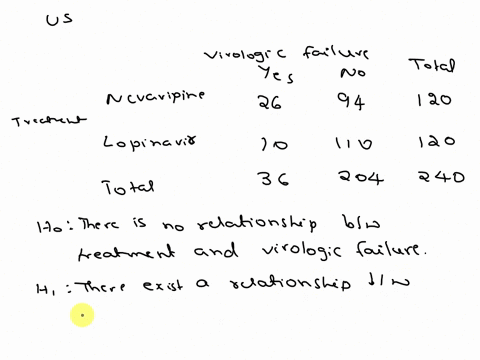 US
Virologic failure
Yes No Total
Nevaripine 26 94 120
Treatment
Lopinavir 10 110 120
Total 36 204 240
H0: There is no relationship b/w
treatment and virologic failure.
H1: There exist a relationship b/w